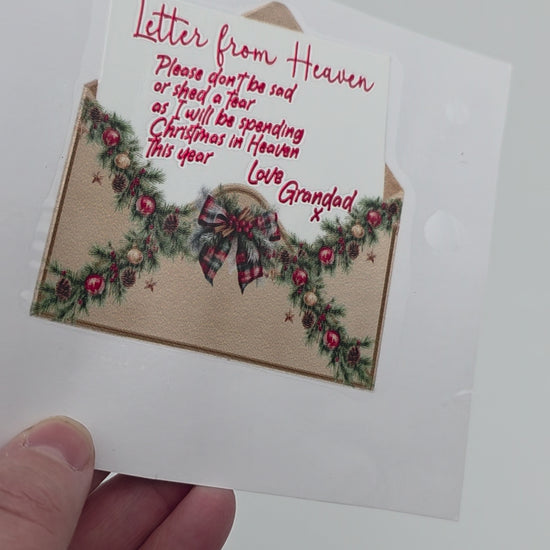 Letter from Heaven
Please don't be sad
or shed a tear
as I will be spending
Christmas in Heaven
this year
Love
Grandad
x